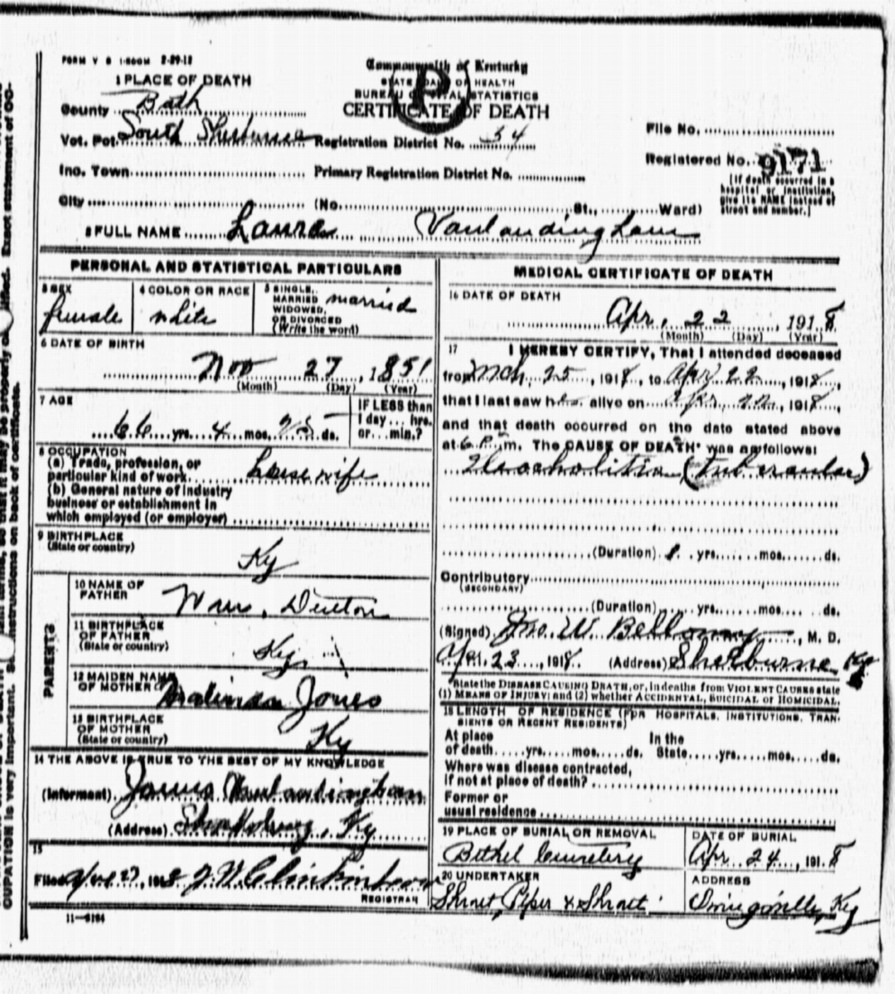 FORM V S 1-500M 2-29-12
Commonwealth of Kentucky
STATE BOARD OF HEALTH
BUREAU OF VITAL STATISTICS
CERTIFICATE OF DEATH
P
1 PLACE OF DEATH
County Bath
Vot. Pct. South Sherburne Registration District No. 34
Inc. Town Primary Registration District No.
City (No. St., Ward)
File No.
Registered No. 9171
[If death occurred in a
hospital or institution,
give its NAME instead of
street and number.]
2 FULL NAME Laura Vanlandingham
PERSONAL AND STATISTICAL PARTICULARS
3 SEX
female
4 COLOR OR RACE
white
5 SINGLE,
MARRIED
WIDOWED,
OR DIVORCED
(Write the word)
married
6 DATE OF BIRTH
Nov 27, 1851
(Month) (Day) (Year)
7 AGE
66 yrs. 4 mos. 25 ds.
IF LESS than
1 day ... hrs.
or... min.?
8 OCCUPATION
(a) Trade, profession, or
particular kind of work housewife
(b) General nature of industry
business or establishment in
which employed (or employer)
9 BIRTHPLACE
(State or country)
Ky
PARENTS
10 NAME OF
FATHER
Denton
11 BIRTHPLACE
OF FATHER
(State or country)
Ky
12 MAIDEN NAME
OF MOTHER Malinda Jones
13 BIRTHPLACE
OF MOTHER
(State or country)
Ky
14 THE ABOVE IS TRUE TO THE BEST OF MY KNOWLEDGE
(Informant) James Vanlandingham
(Address) Sharpsburg, Ky
15
Filed 191 REGISTRAR
11-5194
MEDICAL CERTIFICATE OF DEATH
16 DATE OF DEATH
Apr, 22, 1918
(Month) (Day) (Year)
17 I HEREBY CERTIFY, That I attended deceased
from Mch 25, 1918, to Apr 22, 1918,
that I last saw her alive on Apr 22, 1918,
and that death occurred on the date stated above
at 6 P.m. The CAUSE OF DEATH* was as follows:
(tubercular)
(Duration) yrs. mos. ds.
Contributory
(SECONDARY)
(Duration) yrs. mos. ds.
(Signed) Jno. W. Bellomy, M. D.
Apr. 23, 1918. (Address) Sherburne Ky
*State the DISEASE CAUSING DEATH, or, in deaths from VIOLENT CAUSES state
(1) MEANS OF INJURY; and (2) whether ACCIDENTAL, SUICIDAL OR HOMICIDAL.
18 LENGTH OF RESIDENCE (FOR HOSPITALS, INSTITUTIONS, TRAN-
SIENTS OR RECENT RESIDENTS)
At place In the
of death yrs. mos. ds. State yrs. mos. ds.
Where was disease contracted,
if not at place of death?
Former or
usual residence
19 PLACE OF BURIAL OR REMOVAL
Bethel Cemetery
DATE OF BURIAL
Apr. 24, 1918
20 UNDERTAKER
Shrout, Piper & Shrout
ADDRESS
Owingsville, Ky
OUPATION is very important. See instructions on back of certificate.
so that it may be properly classified. Exact statement of OC-